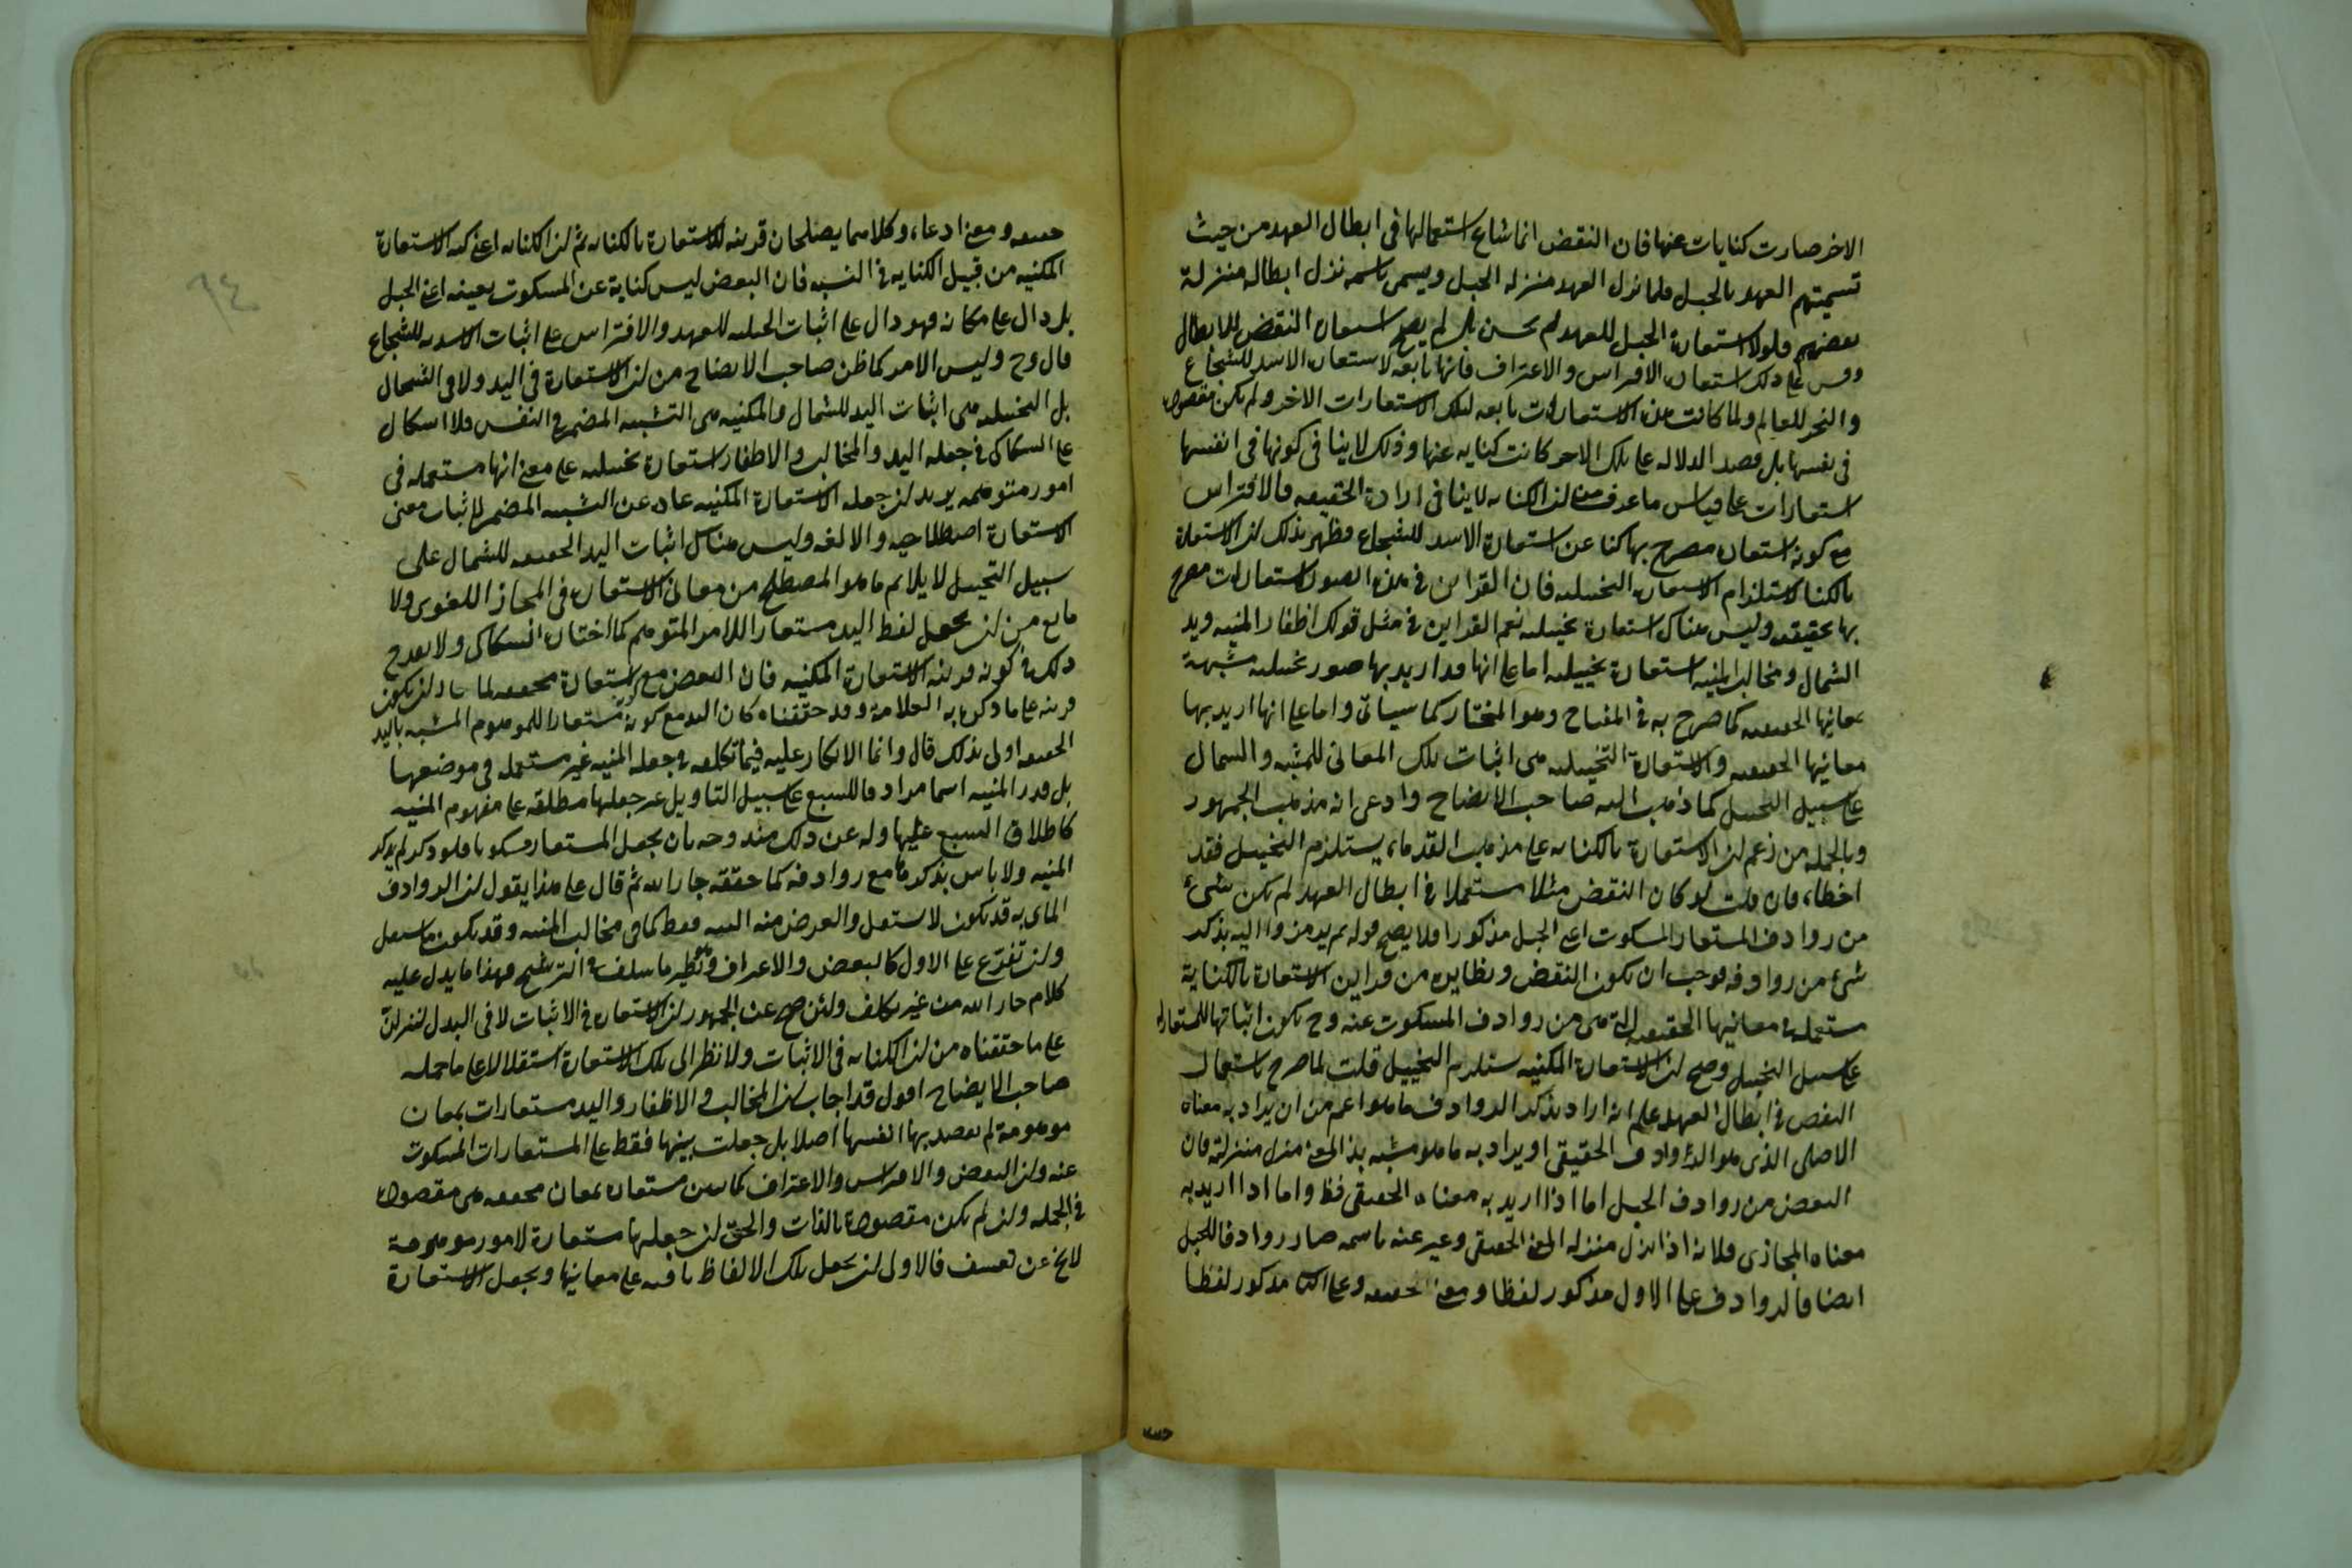 الاخر صارت كنايات عنها فان النقض انما شاع استعمالها فى ابطال العهد من حيث
تسميتهم العهد بالحبل فلما نزل العهد منزله الحبل ويسمى باسمه نزل ابطاله منزلة
بعضهم فلولا استعارة الحبل للعهد لم يحسن بل لم يصح استعارة النقض للابطال
وقس على ذلك استعاره الافتراس والاغتراف فانها تابعه لاستعاره الاسد للشجاع
والبحر للعالم ولما كانت هذه الاستعارات تابعه لتلك الاستعارات الاخر ولم تكن مقصوده
فى نفسها بل قصد الدلاله على تلك الاخر كانت كنايه عنها وذلك لا ينافى كونها فى انفسها
استعارات على قياس ما عرف من ان الكنايه لا ينافى ارادة الحقيقه فالافتراس
مع كونه استعاره مصرح بها كنا عن استعارة الاسد للشجاع وظهر بذلك ان الاستعارة
بالكنا لا يستلزم الاستعاره التخييليه فان القراين فى هذه الصور استعارات مصرح
بها تحقيقه وليس هناك استعارة تخييليه نعم القراين فى مثل قولك اظفار المنيه ويد
الشمال ومخالب المنيه استعارة تخييليه اما على انها قد اريد بها صور تخييليه مشبهة
بمعانيها الحقيقيه كما صرح به فى المفتاح وهو المختار كما سيأتى واما على انها اريد بها
معانيها الحقيقيه والاستعارة التخييليه هى اثبات تلك المعانى للمشبه والشمال
على سبيل التخييل كما ذهب اليه صاحب الايضاح وادعى انه مذهب الجمهور
وبالجمله من زعم ان الاستعارة بالكنايه على مذهب القدماء يستلزم التخييل فقد
اخطاء فان قلت لو كان النقض مثلا مستعملا فى ابطال العهد لم يكن شئ
من روادف المستعار المسكوت اعنى الحبل مذكورا فلا يصح قوله ثم يرمزوا اليه بذكر
شئ من روادفه فوجب ان يكون النقض ونظايره من قراين الاستعارة بالكناية
مستعمله فى معانيها الحقيقيه التى هى من روادف المسكوت عنه وح يكون اثباتها للمستعار له
على سبيل التخييل وصح ان الاستعارة المكنيه يستلزم التخييل قلت لما صرح باستعمال
النقض فى ابطال العهد علم انه اراد بذكر الروادف ما هو اعم من ان يراد به معناه
الاصلى الذى هو الروادف الحقيقى او يراد به ما هو مشبه بذا المعنى منزل منزلته فان
النقض من روادف الحبل اما اذا اريد به معناه الحقيقى فظ واما اذا اريد به
معناه المجازى فلانه اذا نزل منزله المعنى الحقيقى وعبر عنه باسمه صار روادفا للحبل
ايضا فالروادف على الاول مذكور لفظا ومعنى حقيقه وعلى الثا مذكور لفظا
حقيقه
حقيقه ومعنى ادعاء وكلاهما يصلحان قرينه للاستعارة بالكنايه ثم ان الكنايه اعنى كنه الاستعارة
المكنيه من قبيل الكنايه فى النسبه فان النقض ليس كناية عن المسكوت بعينه اعنى الحبل
بل دال على مكانه فهو دال على اثبات الحبليه للعهد والافتراس على اثبات الاسديه للشجاع
قال وح وليس الامر كما ظن صاحب الايضاح من ان الاستعارة فى اليد ولا فى الشمال
بل التخييليه هى اثبات اليد للشمال والمكنيه هى التشبيه المضمر فى النفس فلا اشكال
على السكاكى فى جعله اليد والمخالب والاظفار استعارة تخييليه على معنى انها مستعمله فى
امور متوهمه يريد ان جعله الاستعارة المكنيه عباره عن التشبيه المضمر لاثبات معنى
الاستعارة اصطلاحيه والا لغه وليس هناك اثبات اليد الحقيقيه للشمال على
سبيل التخييل لا يلايم ما هو المصطلح من معانى الاستعاره فى المجاز اللغوى ولا
مانع من ان يجعل لفظ اليد مستعارا للامر المتوهم كما اختاره السكاكى ولا يقدح
ذلك فى كونه قرينه الاستعارة المكنيه فان النقض مع كونه استعارة محققه لما جاز ان يكون
قرينه على ما ذكره العلامة وقد حققناه كان اليد مع كونه مستعارا للموهوم المشبه باليد
الحقيقه اولى بذلك قال وانما الانكار عليه فيما تكلفه فى جعله المنيه غير مستعمله فى موضعها
بل قدر المنيه اسما مرادفا للسبع على سبيل التاويل عن جعلها مطلقه على مفهوم المنيه
كاطلاق السبع عليها وله عن ذلك مندوحه بان يجعل المستعار مسكوتا فلو ذكر لم يذكر
المنيه ولا باس بذكرها مع روادفه كما حققه جار الله ثم قال على هذا يقول ان الروادف
الماتى به قد يكون لا يستعمل والغرض منه التنبيه فقط كما فى مخالب المنيه وقد يكون ما يستعمل
وان تفرع على الاول كالنقض والاغتراف ونظير ما سلف فى الترشيح فهذا ما يدل عليه
كلام جار الله من غير تكلف ولئن صح عن الجمهور ان الاستعاره فى الاثبات لا فى البدل لننزلن
على ما حققناه من ان الكنايه فى الاثبات ولا نظر الى تلك الاستعارة استقلالا على ما حمله
صاحب الايضاح اقول قد اجاب بان المخالب والاظفار واليد مستعارات بمعان
موهومة لم يقصد بها انفسها اصلا بل جعلت بينها فقط على المستعارات المسكوت
عنه وان النقض والافتراس والاغتراف كما بين مستعاره بمعان محققه هى مقصوده
فى الجمله وان لم يكن مقصودة بالذات والحق ان جعلها مستعارة لامور موهومة
لا يخ عن تعسف فالاولى ان يجعل تلك الالفاظ باقيه على معانيها ويجعل الاستعارة
٩٤